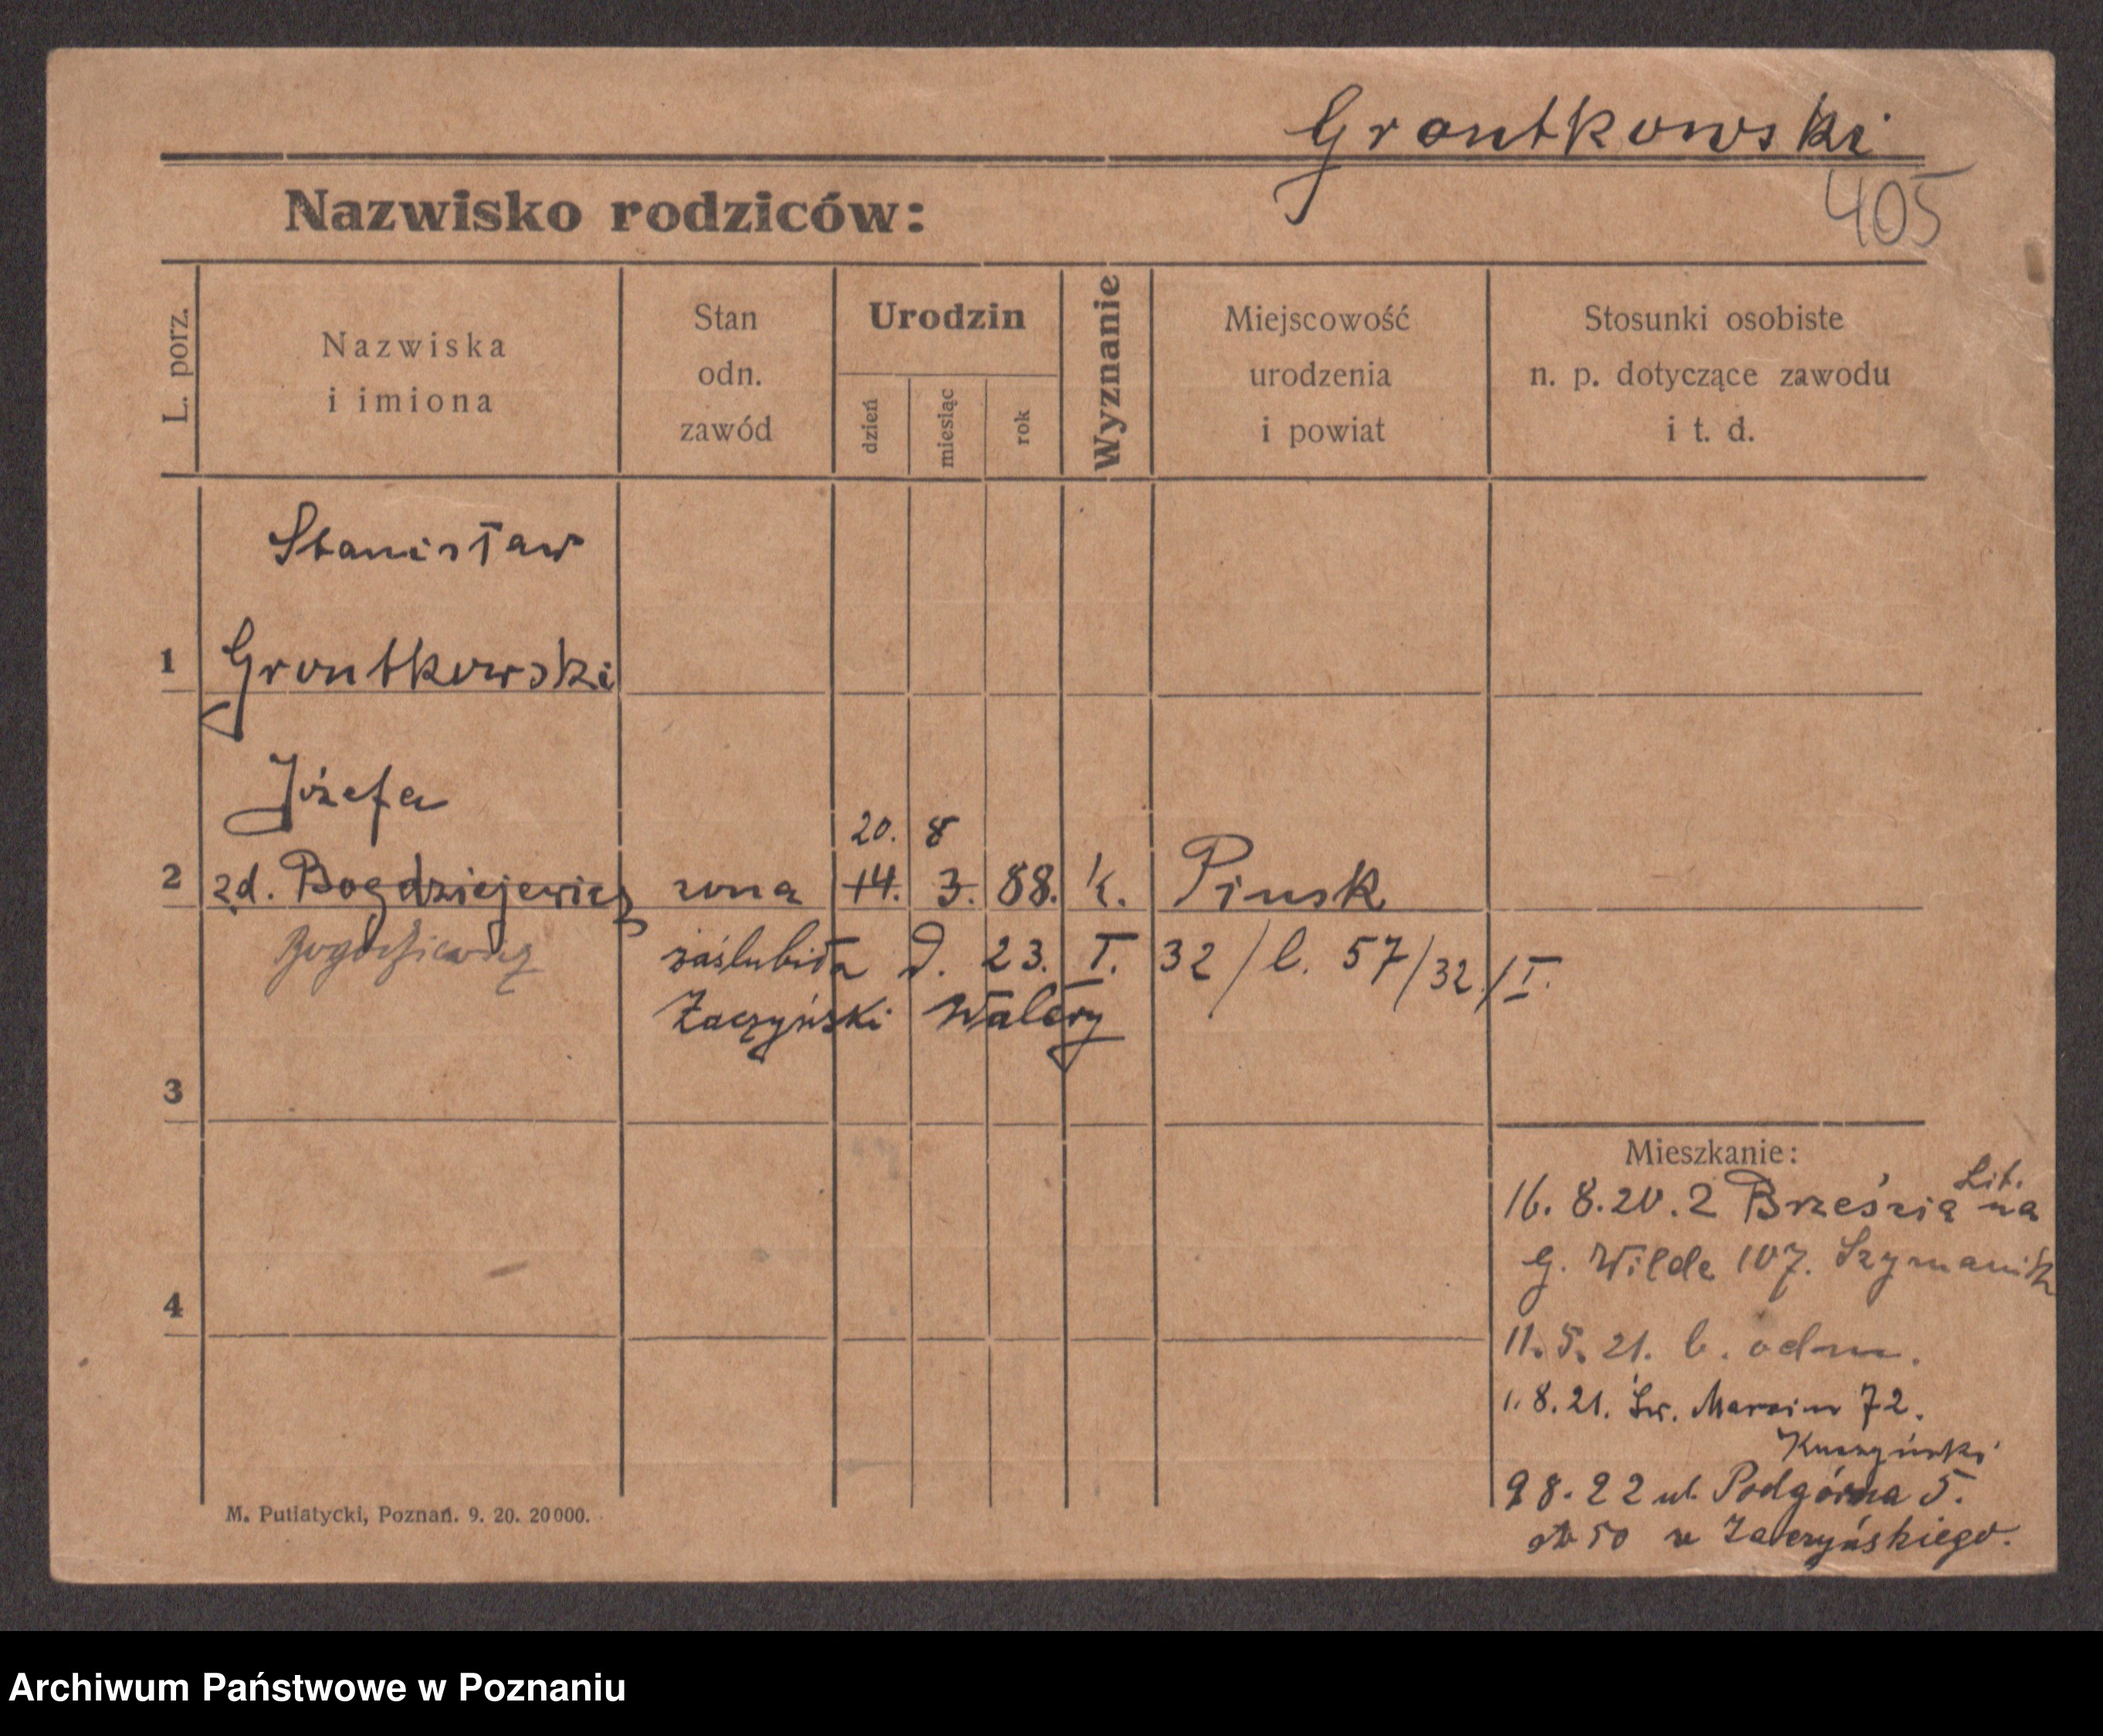 Grontkowski
405
Nazwisko rodziców:
L. porz.
Nazwiska
i imiona
Stan
odn.
zawód
Urodzin
dzień
miesiąc
rok
Wyznanie
Miejscowość
urodzenia
i powiat
Stosunki osobiste
n. p. dotyczące zawodu
i t. d.
Stanisław
1 Grontkowski
Józefa
20. 8
2 zd. Bogdziejewicz żona 14. 3. 88. k. Pinsk
zaślubiła d. 23. I. 32 / l. 57/32/I.
Zaczyński Walery
3
Mieszkanie:
Lit.
16. 8. 20. z Brześcia na
G. Wilda 107. Szymaniak
4
11. 5. 21. b. odm.
1. 8. 21. Św. Marcin 72.
Kuczyński
9 8. 22 ul. Podgórna 5.
50 Zaczyńskiego.
M. Putiatycki, Poznań. 9. 20. 20000.
Archiwum Państwowe w Poznaniu